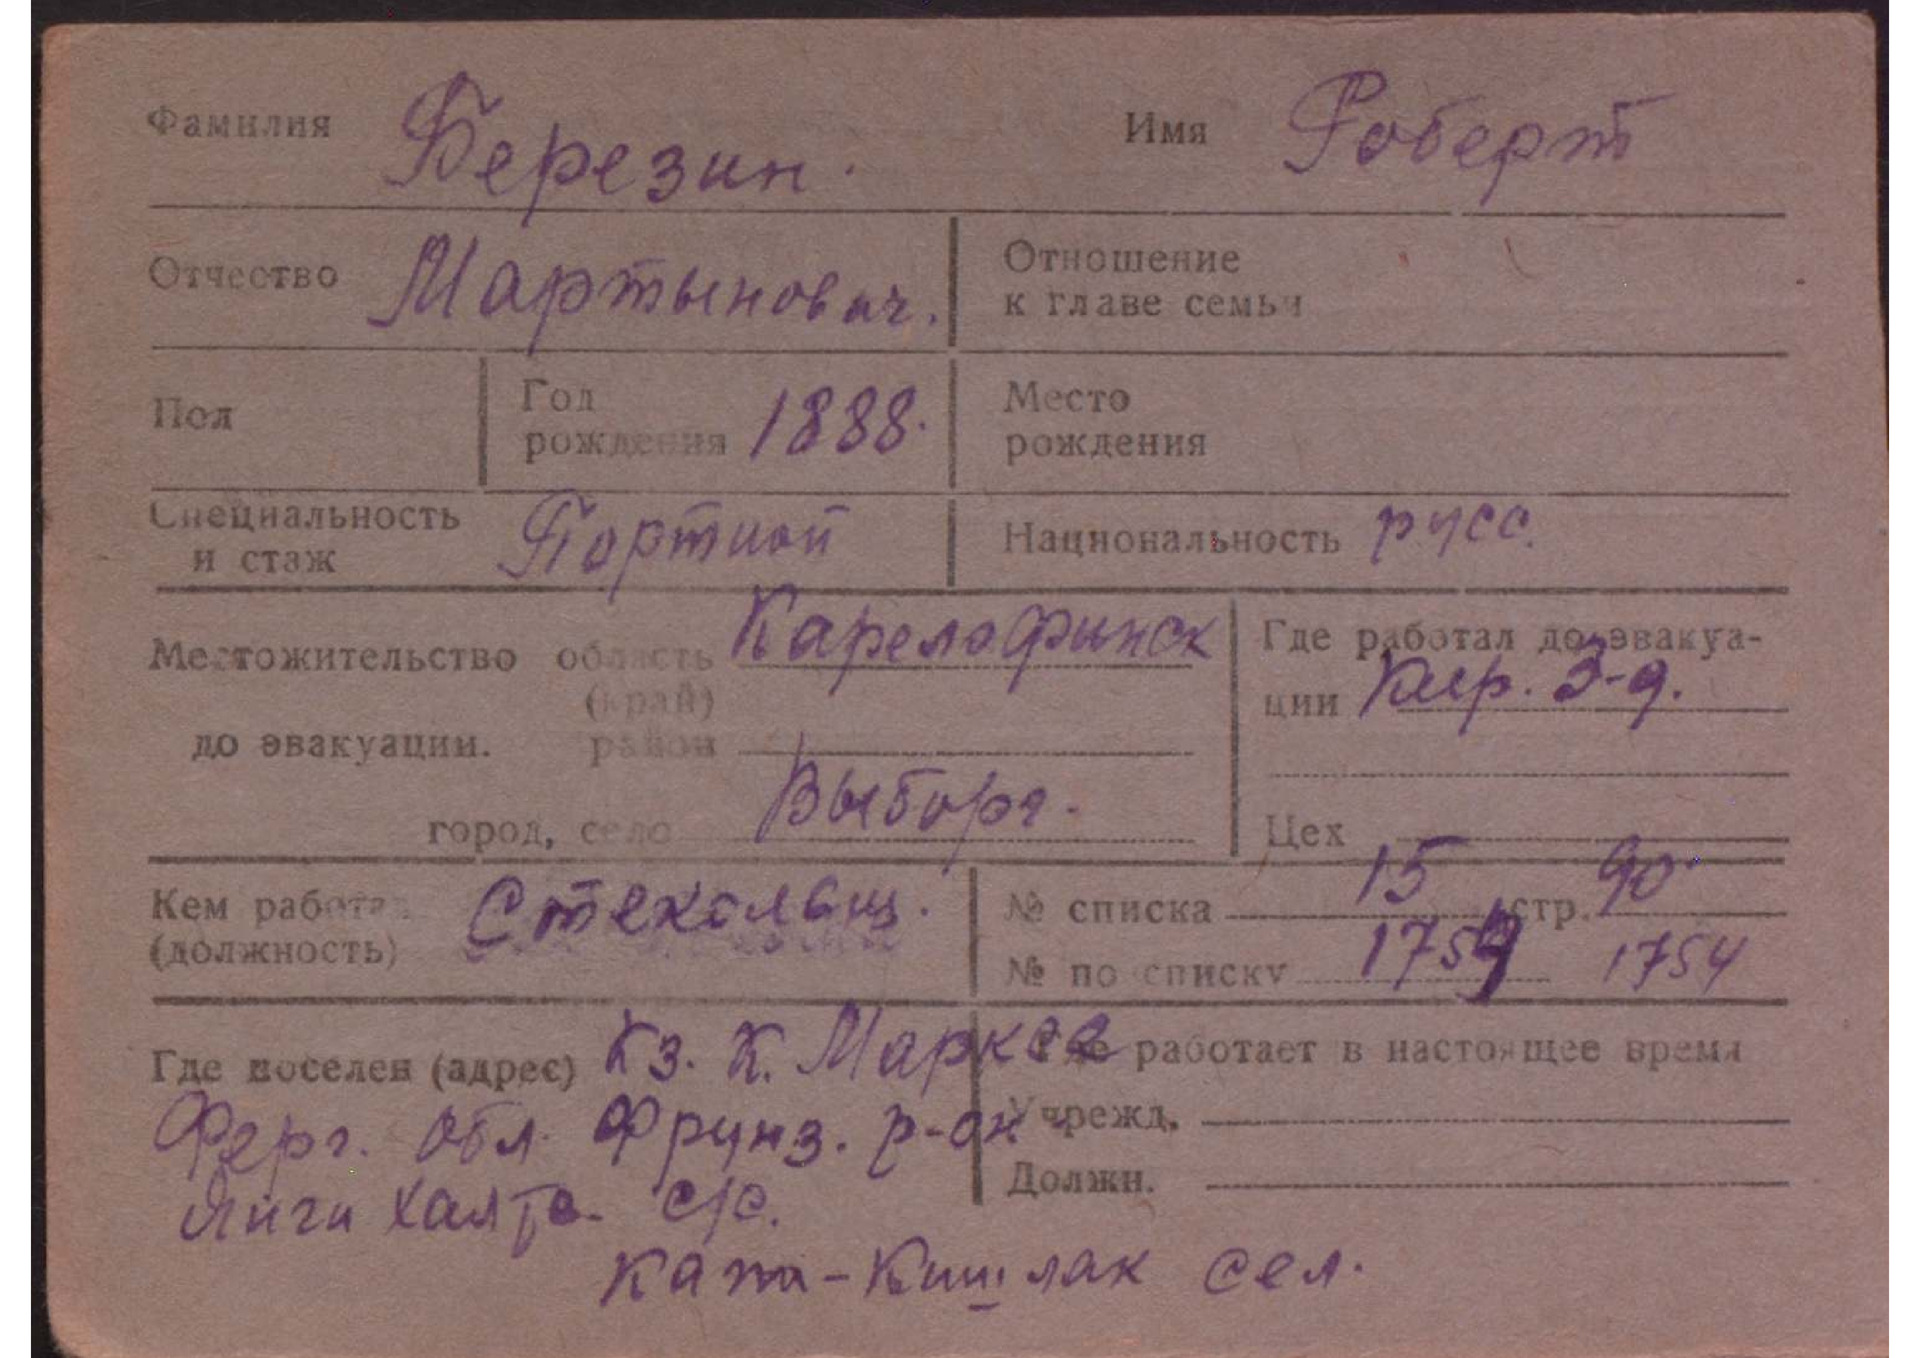 Фамилия Березин. Имя Роберт
Отчество Мартынович. Отношение
к главе семьи
Пол Год рождения 1888. Место
рождения
Специальность и стаж Портной Национальность русс.
Местожительство область Карелофинск Где работал до эвакуа-
(край) ции Кир. З-д.
до эвакуации. район
город, село Выборг. Цех
Кем работал Стекольщ. № списка 15 стр. 90
(должность) № по списку 1754 1754
Где поселен (адрес) Кз. К. Маркса Где работает в настоящее время
Ферг. обл. Фрунз. р-он Учрежд.
Янги с/с. Должн.
Ката-Кишлак сел.